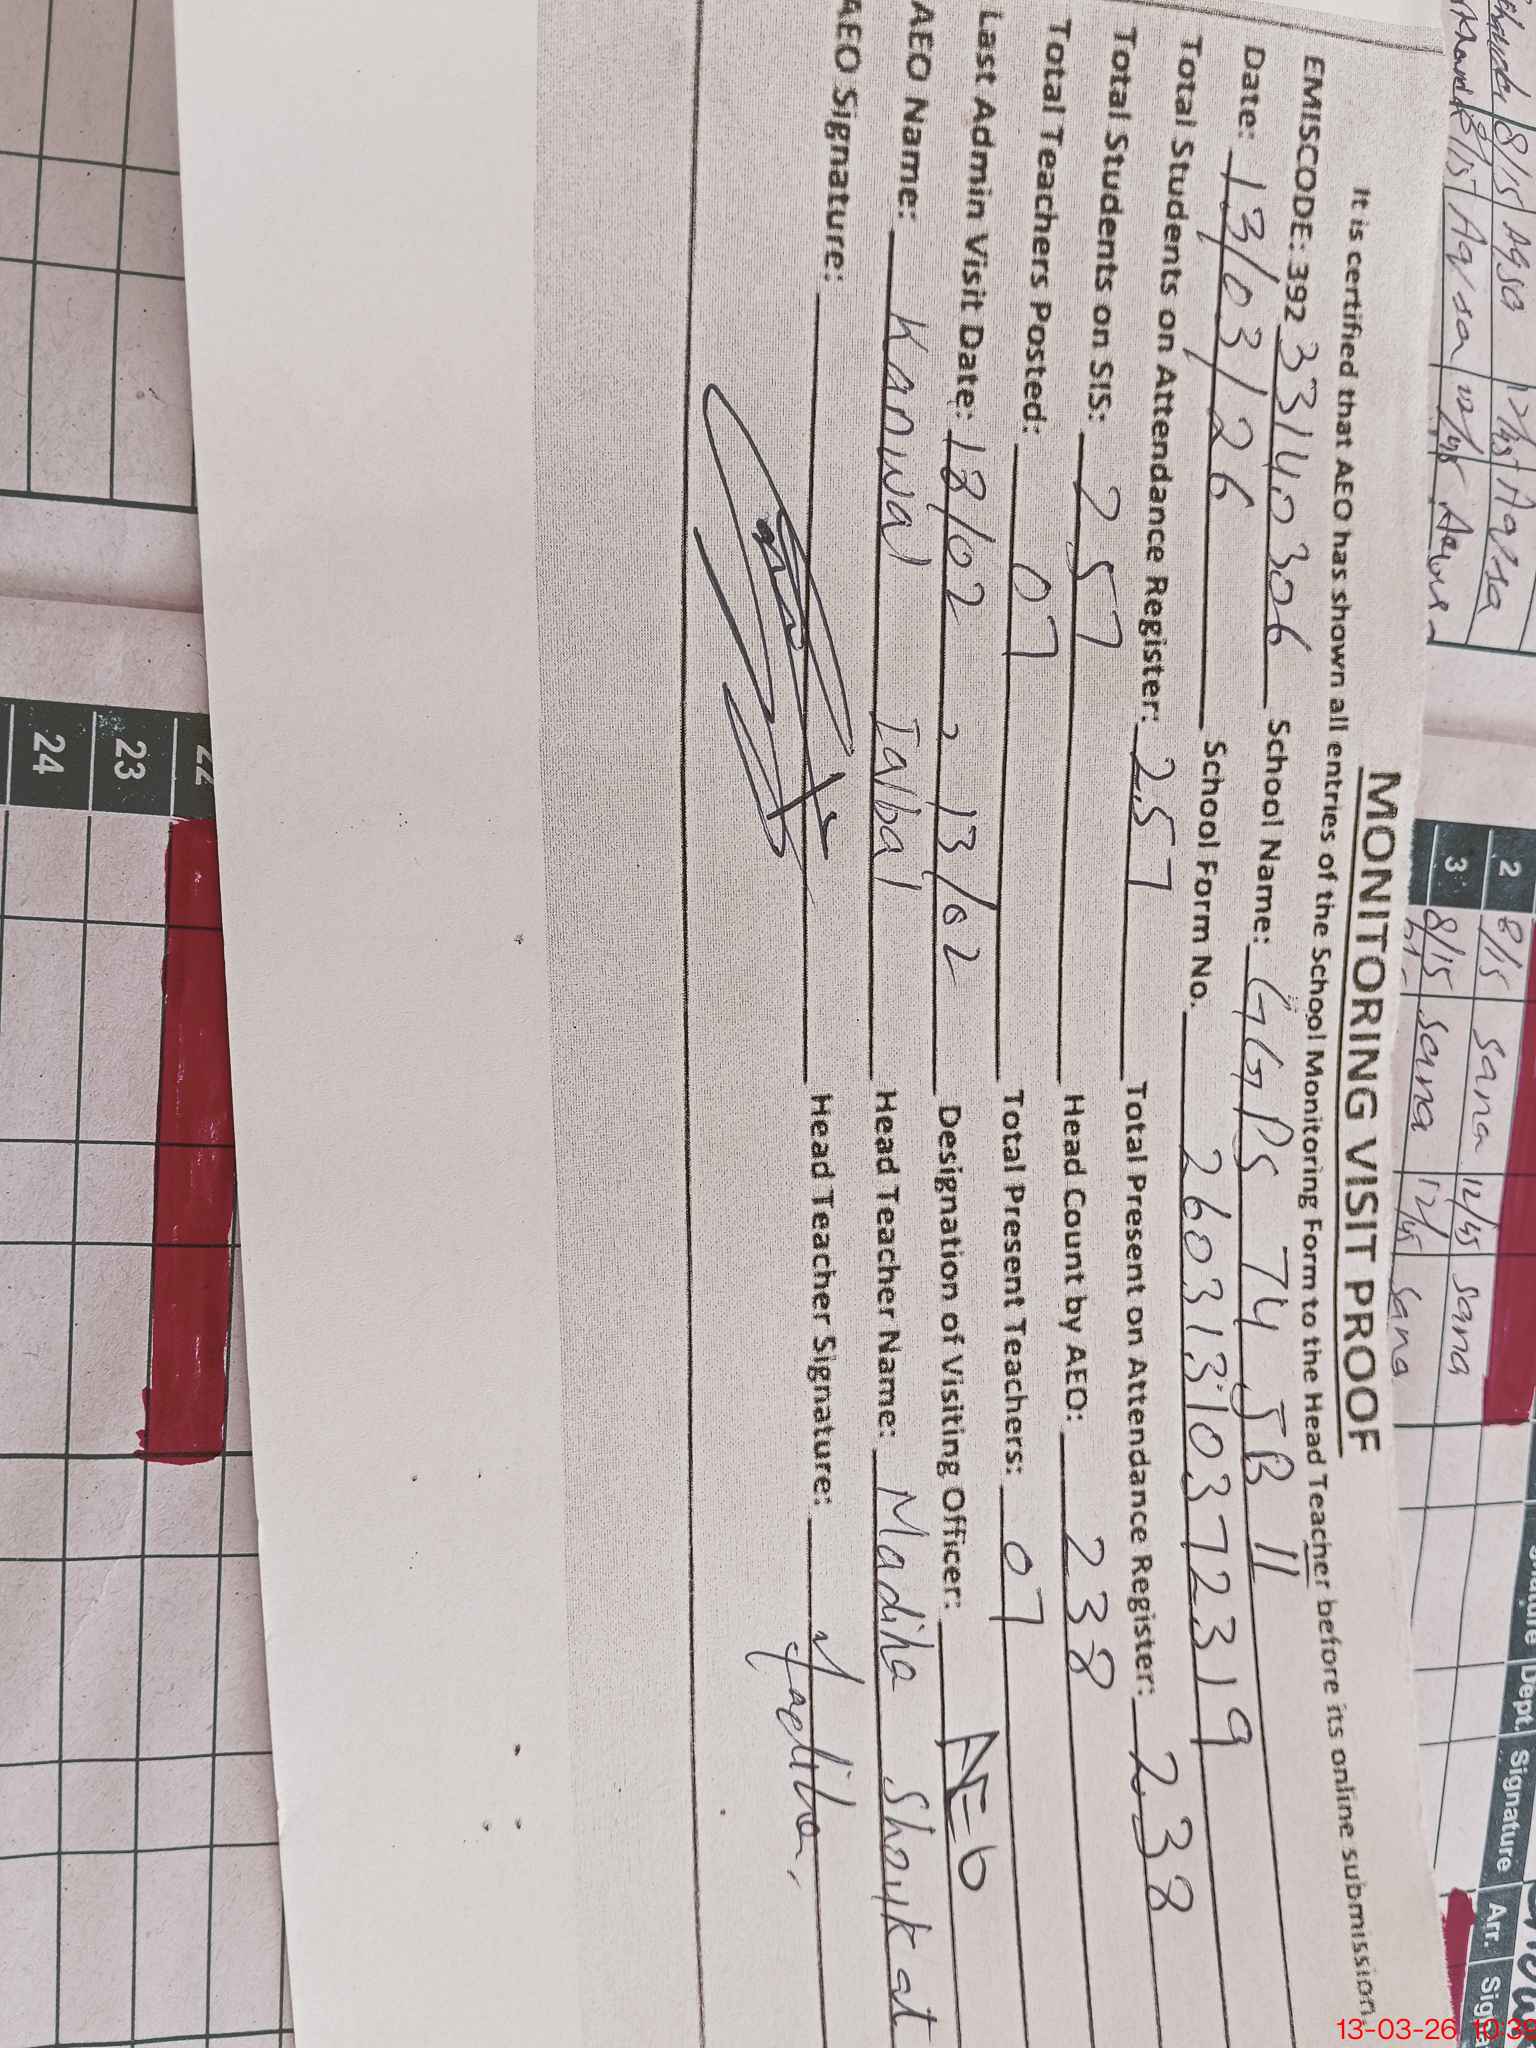 MONITORING VISIT PROOF
It is certified that AEO has shown all entries of the School Monitoring Form to the Head Teacher before its online submission.
EMISCODE: 392 33140306 School Name: GGPS 74 5B II
Date: 13/03/26 School Form No. 26031310372319
Total Students on Attendance Register: 257 Total Present on Attendance Register: 238
Total Students on SIS: 257 Head Count by AEO: 238
Total Teachers Posted: 07 Total Present Teachers: 07
Last Admin Visit Date: 18/02, 13/02 Designation of Visiting Officer: AEO
AEO Name: Kanwal Iqbal Head Teacher Name: Madiha Shoukat
AEO Signature: Head Teacher Signature: Madiha
Dept. Signature Arr.
8/15 Aqsa 12/45 Aqsa
8/15 Aqsa 12/45
2 8/15 Sana 12/45 Sana
3 8/15 Sana 12/45 Sana
22
23
24
13-03-26 10:39